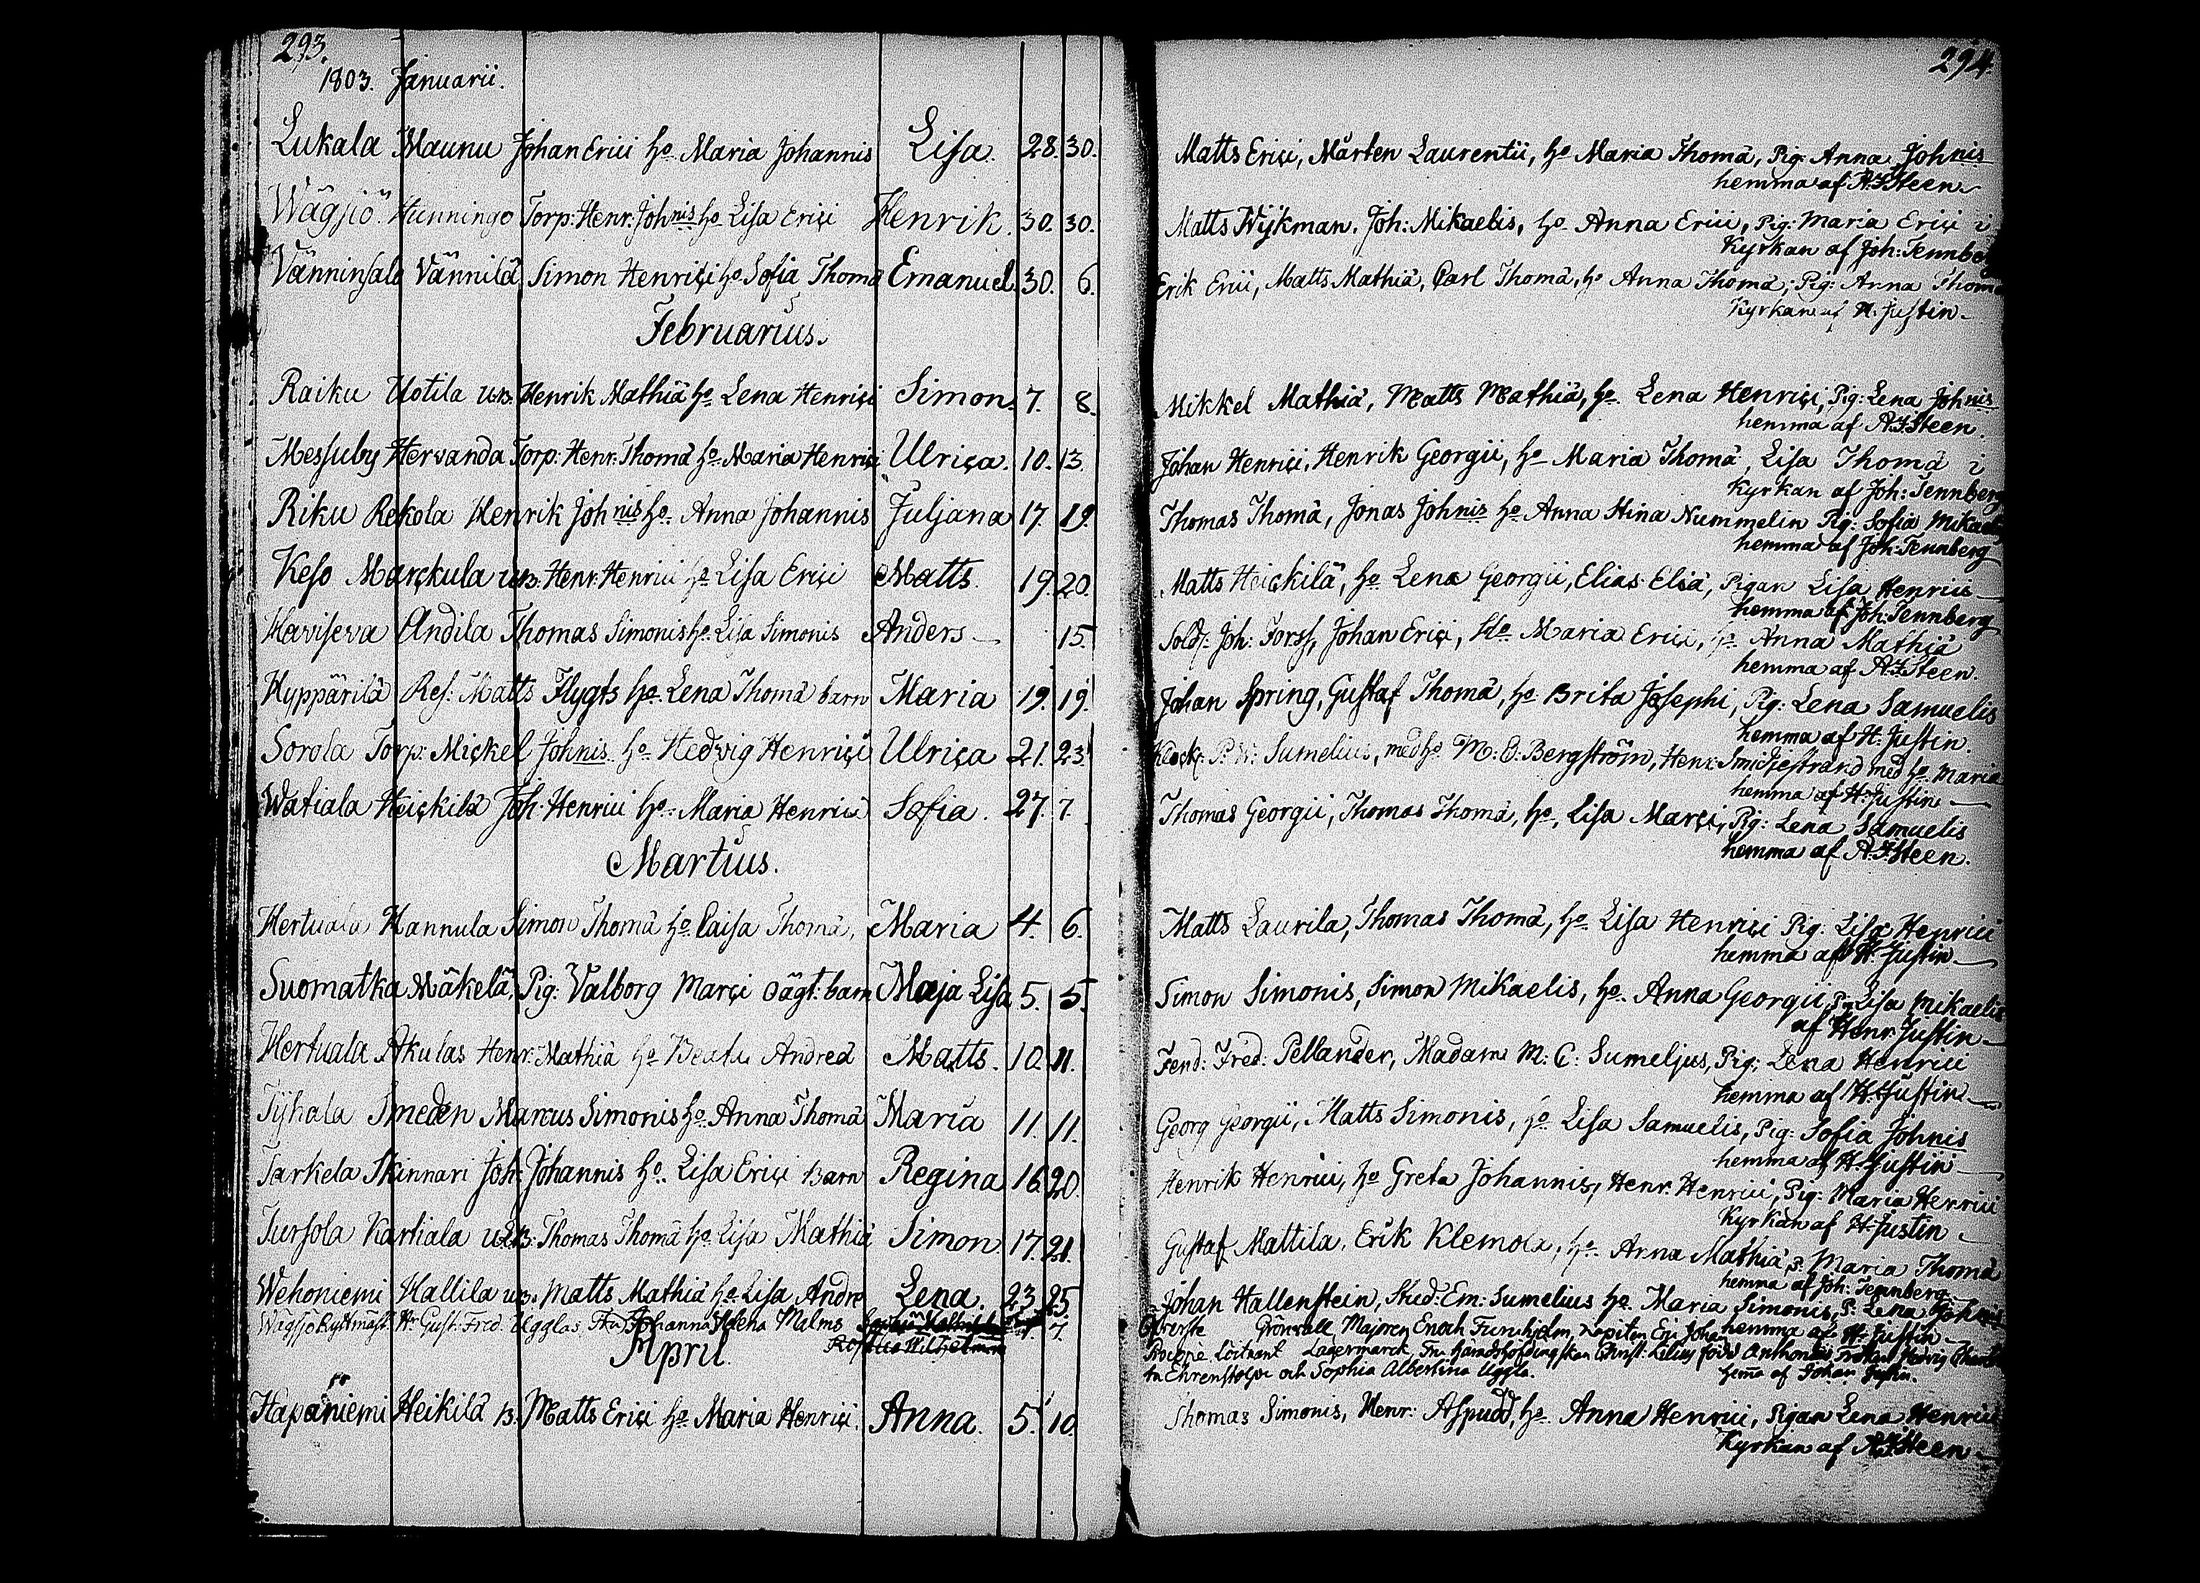 293.
1803. Januarii.
Lukala Maunu Johan Erici ho. Maria Johannis Lisa. 28. 30.
Wägsjö Hunningo Torp: Henr: Johnis ho Lisa Erici Henrik. 30. 30.
Vänninsalo Vännilä Simon Henrici ho Sofia Thomä Emanuel. 30. 6.
Februarius.
Raiku Uotila Henrik Mathiä ho Lena Henrici Simon. 7. 8.
Messuby Hervanda Torp: Henr: Thomä ho Maria Henrici Ulrica. 10. 13.
Riku Rekola Henrik Johnis ho. Anna Johannis Juljana 17. 19.
Keso Marckula Henr: Henrici ho Lisa Erici Matts. 19. 20.
Haviseva Andila Thomas Simonis ho. Lisa Simonis Anders 15.
Hyppärilä Res: Matts Flygts ho Lena Thomä barn Maria 19. 19.
Sorola Torp: Mickel Johnis ho Hedvig Henrici Ulrica 21. 23.
Watiala Heickilä Joh: Henrici ho. Maria Henrici Sofia. 27. 7.
Martius.
Hertuala Hannula Simon Thomä ho Caisa Thomä, Maria 4. 6.
Suomatka Mäkelä, Pig: Valborg Marci oägt: barn Maja Lisa 5. 5.
Hertuala Akulas Henr: Mathiä ho Beata Andreä Matts. 10. 11.
Tyhala Smeden Marcus Simonis ho. Anna Thomä Maria 11. 11.
Tarkela Skinnari Joh: Johannis ho. Lisa Erici Barn Regina 16. 20.
Jursola Kartiala Thomas Thomä ho Lisa Mathiä Simon 17. 21.
Wehoniemi Hallila Matts Mathiä ho. Lisa Andre Lena. 23. 25.
Wägsjö Ryttmäst: Hr Gust: Fred: Ugglas Fru Johanna Helena Malms 7.
April.
Hapaniemi Heikilä B. Matts Erici ho Maria Henrici. Anna. 5. 10.
294.
Matts Erici, Mårten Laurentii, ho Maria Thomä, Pig: Anna Johnis
hemma af A. J. Steen
Matts Wijkman, Joh: Mikaelis, ho Anna Erici, Pig: Maria Erici i
Kyrkan af Joh: Tennberg
Erik Erici, Matts Mathiä, Carl Thomä, ho Anna Thomä, Pig: Anna Thomä
Kyrkan af H. Justin
Mikkel Mathiä, Matts Mathiä, ho. Lena Henrici, Pig: Lena Johnis
hemma af A. J. Steen.
Johan Henrici, Henrik Georgii, ho Maria Thomä, Lisa Thomä i
Kyrkan af Joh: Tennberg
Thomas Thomä, Jonas Johnis ho Anna Stina Nummelin Pig: Sofia Mikaelis
hemma af Joh: Tennberg
Matts Heickilä, ho Lena Georgii, Elias Eliä, Pigan Lisa Henrici
hemma af Joh: Tennberg
Sold: Joh: Forss, Johan Erici, Maria Erici, ho. Anna Mathiä
hemma af A. J. Steen.
Johan Spring, Gustaf Thomä, ho Brita Josephi, Pig: Lena Samuelis
hemma af H. Justin.
Klock: Sumelius, med ho M: C: Bergström, Henr: Smidjestrand med ho Maria
hemma af H. Justin
Thomas Georgii, Thomas Thomä, ho, Lisa Marci, Pig: Lena Samuelis
hemma af A. J. Steen.
Matts Laurila, Thomas Thomä, ho Lisa Henrici Pig: Lisa Henrici
hemma af H. Justin
Simon Simonis, Simon Mikaelis, ho. Anna Georgii, Lisa Mikaelis
af Henr: Justin
Fend: Fred: Pellander, Madam M: C: Sumeljus, Pig: Lena Henrici
hemma af H. Justin
Georg Georgii, Matts Simonis, ho. Lisa Samuelis, Pig: Sofia Johnis
hemma af H. Justin
Henrik Henrici, ho Greta Johannis, Henr: Henrici, Pig: Maria Henrici
Kyrkan af H. Justin
Gustaf Mattila, Erik Klemola, ho. Anna Mathiä, P: Maria Thomä
hemma af Joh: Tennberg
Johan Hallenstein, Stud: Em: Sumelius ho. Maria Simonis, P: Lena Johnis
hemma af H. Justin
Öfverste Grönvall, Majoren Enoch Furuhjelm, Kapiten Eri Johan
Procopé, Löitnant Lagermarck, Fru Häradshöfdingskan Christ: Lilius född Anthoni, Fröken Hedvig Charlot
ta Ehrenstolpe och Sophia Albertina Uggla. hemma af Johan Justin.
Thomas Simonis, Henr: Aspudd, ho. Anna Henrici, Pigan Lena Henrici
Kyrkan af A. J. Steen